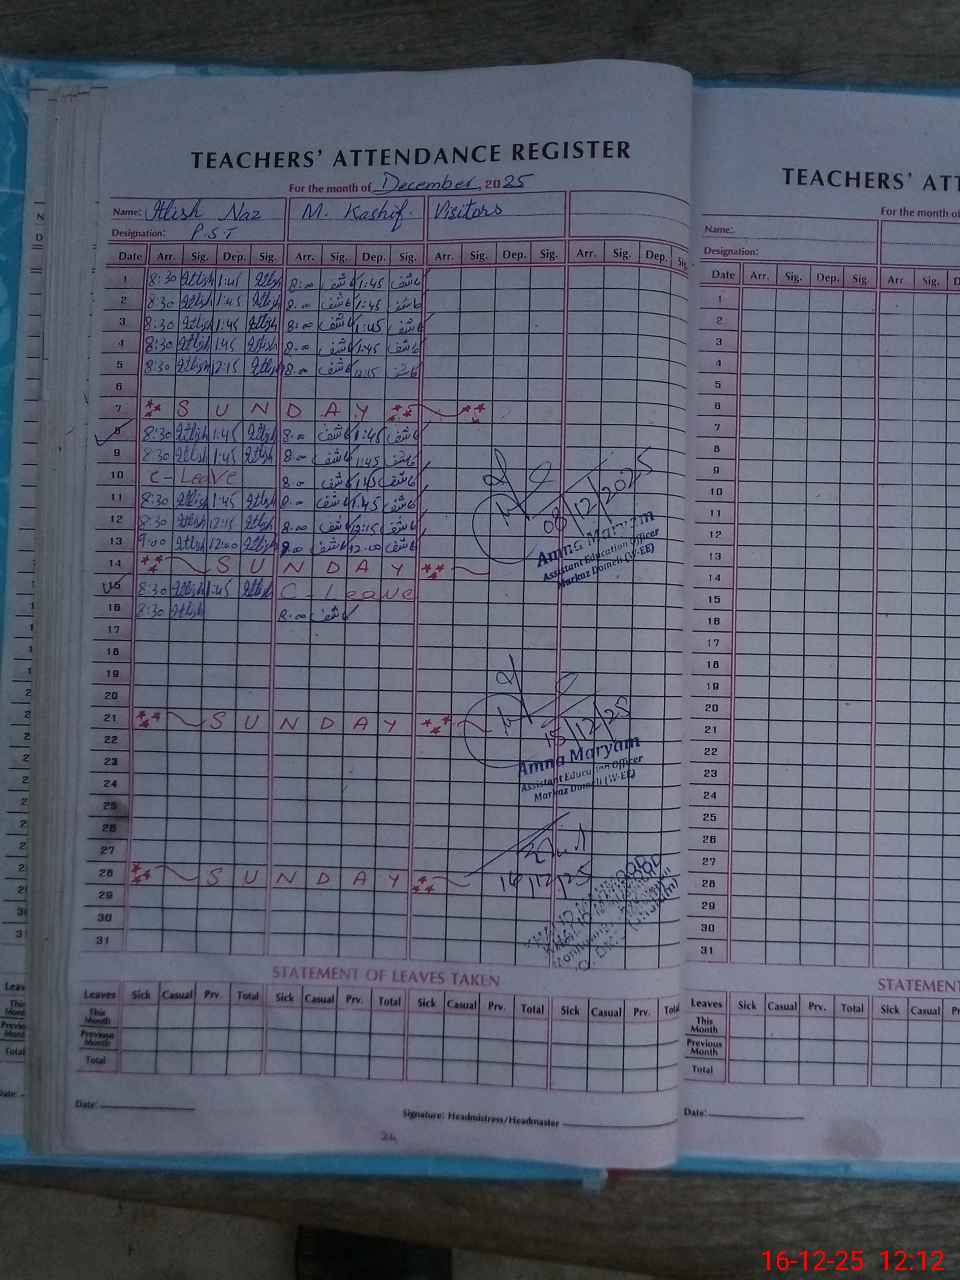 TEACHERS' ATTENDANCE REGISTER
For the month of December, 2025
Name: Atish Naz M. Kashif. Visitors
Designation: P.S.T
Date Arr. Sig. Dep. Sig. Arr. Sig. Dep. Sig. Arr. Sig. Dep. Sig. Arr. Sig. Dep. Sig.
1 8:30 Atish 1:45 Atish 8:00 کاشف 1:45 کاشف
2 8:30 Atish 1:45 Atish 8:00 کاشف 1:45 کاشف
3 8:30 Atish 1:45 Atish 8:00 کاشف 1:45 کاشف
4 8:30 Atish 1:45 Atish 8:00 کاشف 1:45 کاشف
5 8:30 Atish 12:15 Atish 8:00 کاشف 12:15 کاشف
6
7 SUNDAY
8 8:30 Atish 1:45 Atish 8:00 کاشف 1:45 کاشف
9 8:30 Atish 1:45 Atish 8:00 کاشف 1:45 کاشف
10 C-Leave 8:00 کاشف 1:45 کاشف
11 8:30 Atish 1:45 Atish 8:00 کاشف 1:45 کاشف
12 8:30 Atish 12:15 Atish 8:00 کاشف 12:15 کاشف
13 9:00 Atish 12:00 Atish 8:00 کاشف 12:00 کاشف
14 SUNDAY
15 8:30 Atish 1:45 Atish C-Leave
16 8:30 Atish 8:00 کاشف
17
18
19
20
21 SUNDAY
22
23
24
25
26
27
28 SUNDAY
29
30
31
08/12/2025
Amna Maryam
Assistant Education Officer
Markaz Domeli (W-EE)
15/12/25
Amna Maryam
Assistant Education Officer
Markaz Domeli (W-EE)
16/12/25
STATEMENT OF LEAVES TAKEN
Leaves Sick Casual Prv. Total Sick Casual Prv. Total Sick Casual Prv. Total Sick Casual Prv. Total
This Month
Previous Month
Total
Date:
Signature: Headmistress/Headmaster
24
TEACHERS' ATT
For the month of
Name:
Designation:
Date Arr. Sig. Dep. Sig. Arr Sig. D
1
2
3
4
5
6
7
8
9
10
11
12
13
14
15
16
17
18
19
20
21
22
23
24
25
26
27
28
29
30
31
STATEMENT
Leaves Sick Casual Prv. Total Sick Casual P
This Month
Previous Month
Total
Date:
16-12-25 12:12